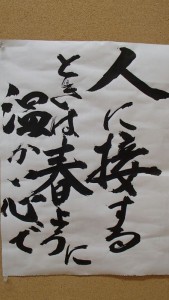 人に接する
ときは春ように
温かい心で